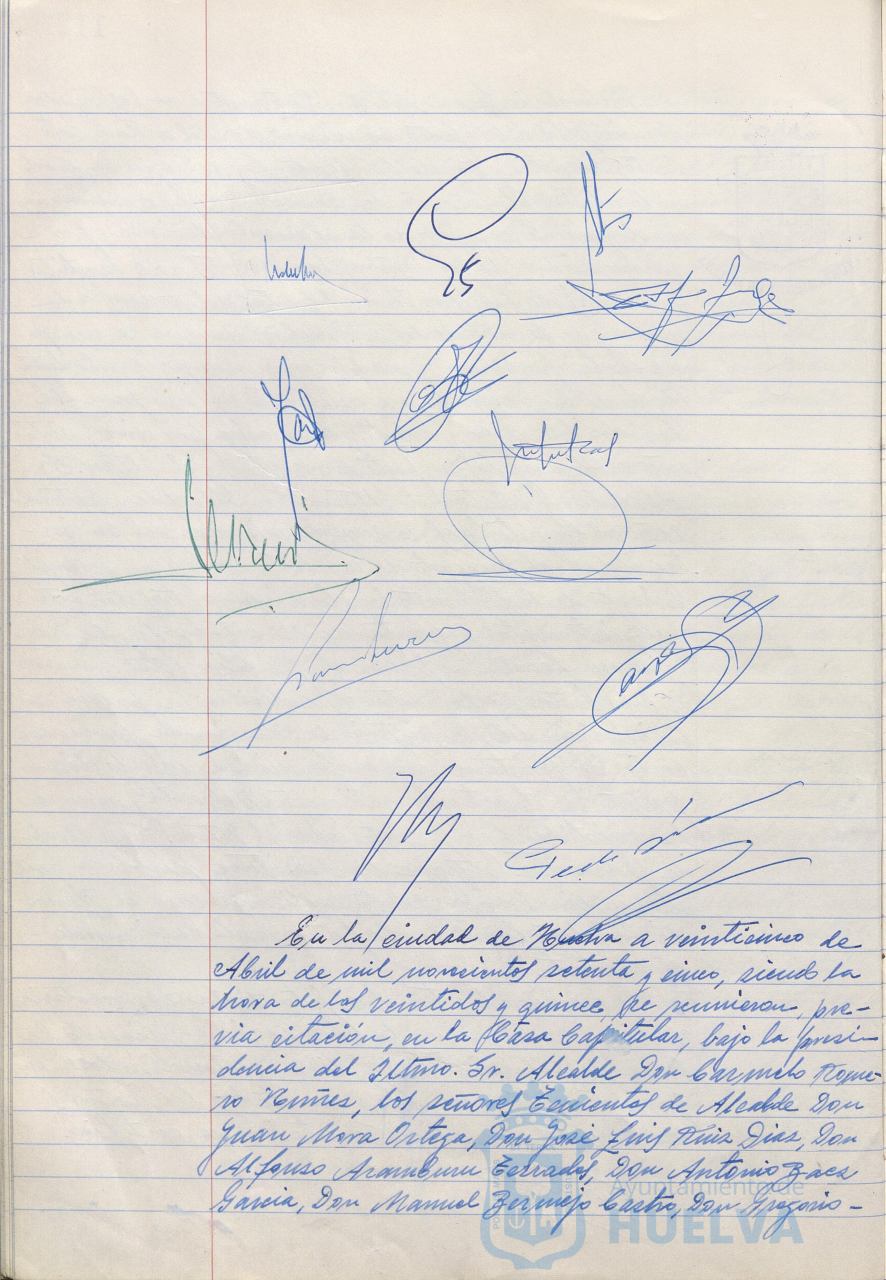 En la ciudad de Huelva a veinticinco de
Abril de mil novecientos setenta y cinco, siendo la
hora de las veintidos y quince, se reunieron, pre-
via citación, en la Casa Capitular, bajo la presi-
dencia del Iltmo. Sr. Alcalde Don Carmelo Rome-
ro Núñez, los señores Tenientes de Alcalde Don
Juan Mora Ortega, Don José Luis Ruiz Díaz, Don
Alfonso Aramburu Terrados, Don Antonio Baez
García, Don Manuel Bermejo Castro, Don Gregorio-
Ayuntamiento de
HUELVA